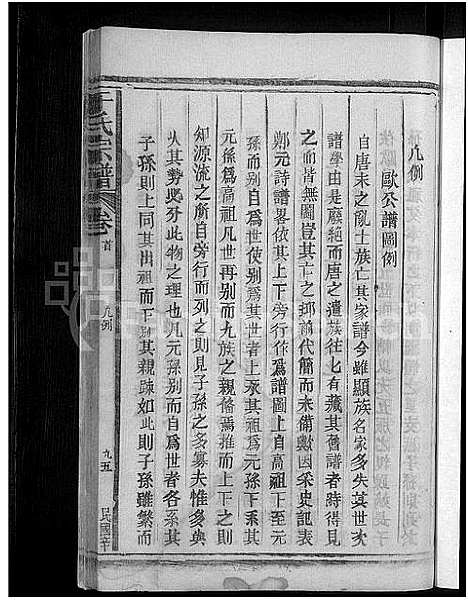 凡例
歐公譜圖例
自唐末之亂士族亡其家譜今雖顯族名家多失其世次
譜學由是廢絕而唐之遺族往匕有藏其舊譜者時得見
之而皆無圖豈其亡之抑前代簡而未備歟因采史記表
鄭元詩譜畧依其上下旁行作爲譜圖上自高祖下至元
孫而别自爲世使别爲其世者上承其祖爲元孫下系其
元孫爲高祖凡世再别而九族之親備焉推而上下之則
知源流之所自旁行而列之則見子孫之多寡夫惟多與
久其勢必分此物之理也凡元孫别而自爲世者各系其
子孫則上同其出祖而下别其親疎如此則子孫雖繁而
王氏宗譜
卷首
凡例
九五
民國辛